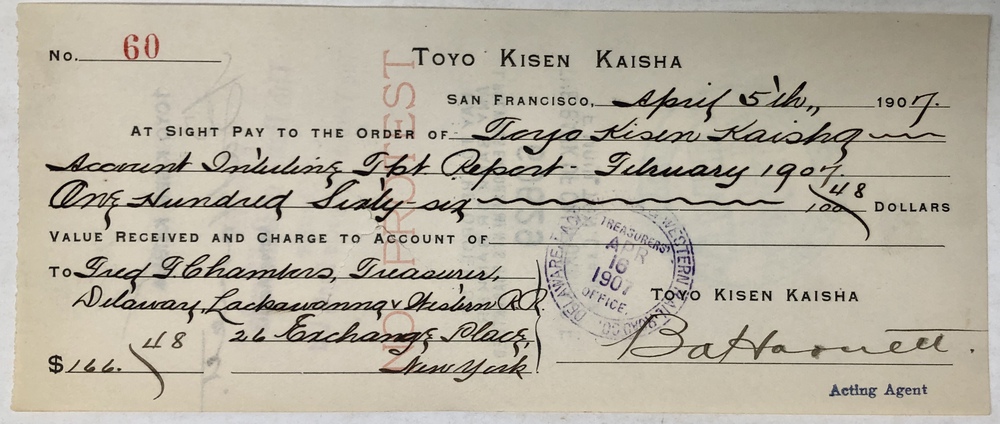 No. 60
TOYO KISEN KAISHA
SAN FRANCISCO, April 5th,, 1907.
AT SIGHT PAY TO THE ORDER OF Toyo Kisen Kaisha
Account Interline Fpt Report - February 1907.
One Hundred Sixty-six 48/100 DOLLARS
VALUE RECEIVED AND CHARGE TO ACCOUNT OF
To Fred F Chambers, Treasurer,
Delaware, Lackawanna & Western R.R.
26 Exchange Place,
$166.48 New York
NO PROTEST
DELAWARE, LACKAWANNA & WESTERN RAILROAD CO.
TREASURERS'
APR
16
1907
OFFICE.
TOYO KISEN KAISHA
Acting Agent